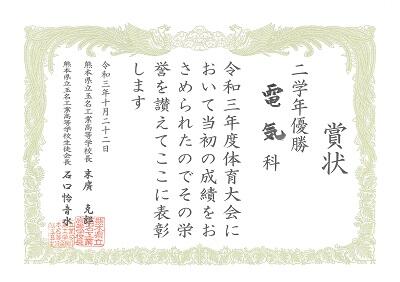 賞状
二学年優勝
電気科
令和三年度体育大会に
おいて当初の成績をお
さめられたのでその栄
誉を讃えてここに表彰
します
令和三年十月二十二日
熊本県立玉名工業高等学校長 末廣 克
熊本県立玉名工業高等学校生徒会長 石口怜音